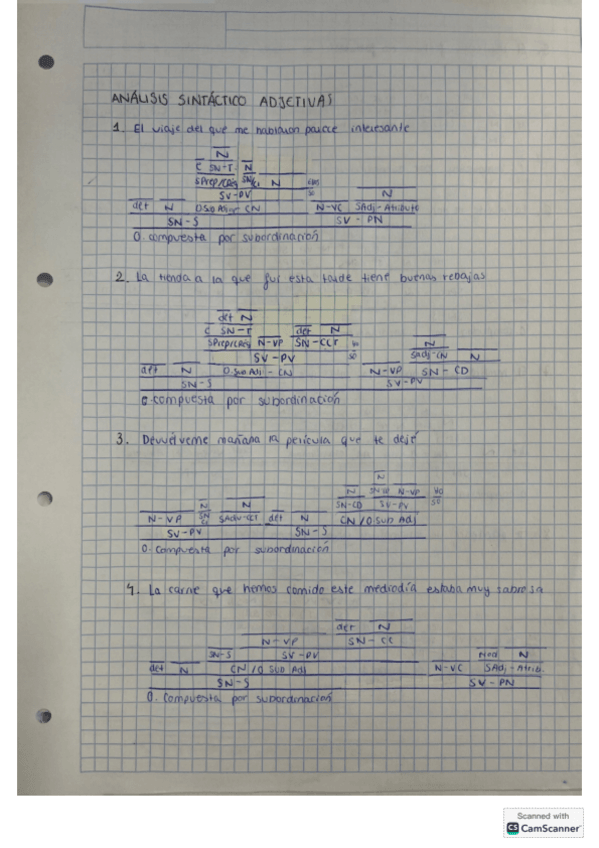 ANÁLISIS SINTÁCTICO ADJETIVAS
1. El viaje del que me hablaron parece interesante
N
C SN-T N
SPrep/CReg N
SV-PV
det N O Sub Adj - CN N-VC SAdj-Atributo
N
SN-S SV-PN
O. compuesta por subordinación
2. La tienda a la que fui esta tarde tiene buenas rebajas
det N
C SN-T det N N
SPrep/CReg N-VP SN-CCT SAdj-CN N
SV-PV
det N O Sub Adj - CN N-VP SN-CD
SN-S SV-PV
O. compuesta por subordinación
3. Devuélveme mañana la película que te dejé
N
N N SN-CI N-VP
SN-CD SV-PV
N-VP SAdv-CCT det N CN/O Sub Adj
SV-PV SN-S
O. Compuesta por subordinación
4. La carne que hemos comido este mediodía estaba muy sabrosa
det N
N-VP SN-CC
SN-S SV-PV Mod N
det N CN/O Sub Adj N-VC SAdj-Atrib.
SN-S SV-PN
O. Compuesta por subordinación
Scanned with
CS CamScanner